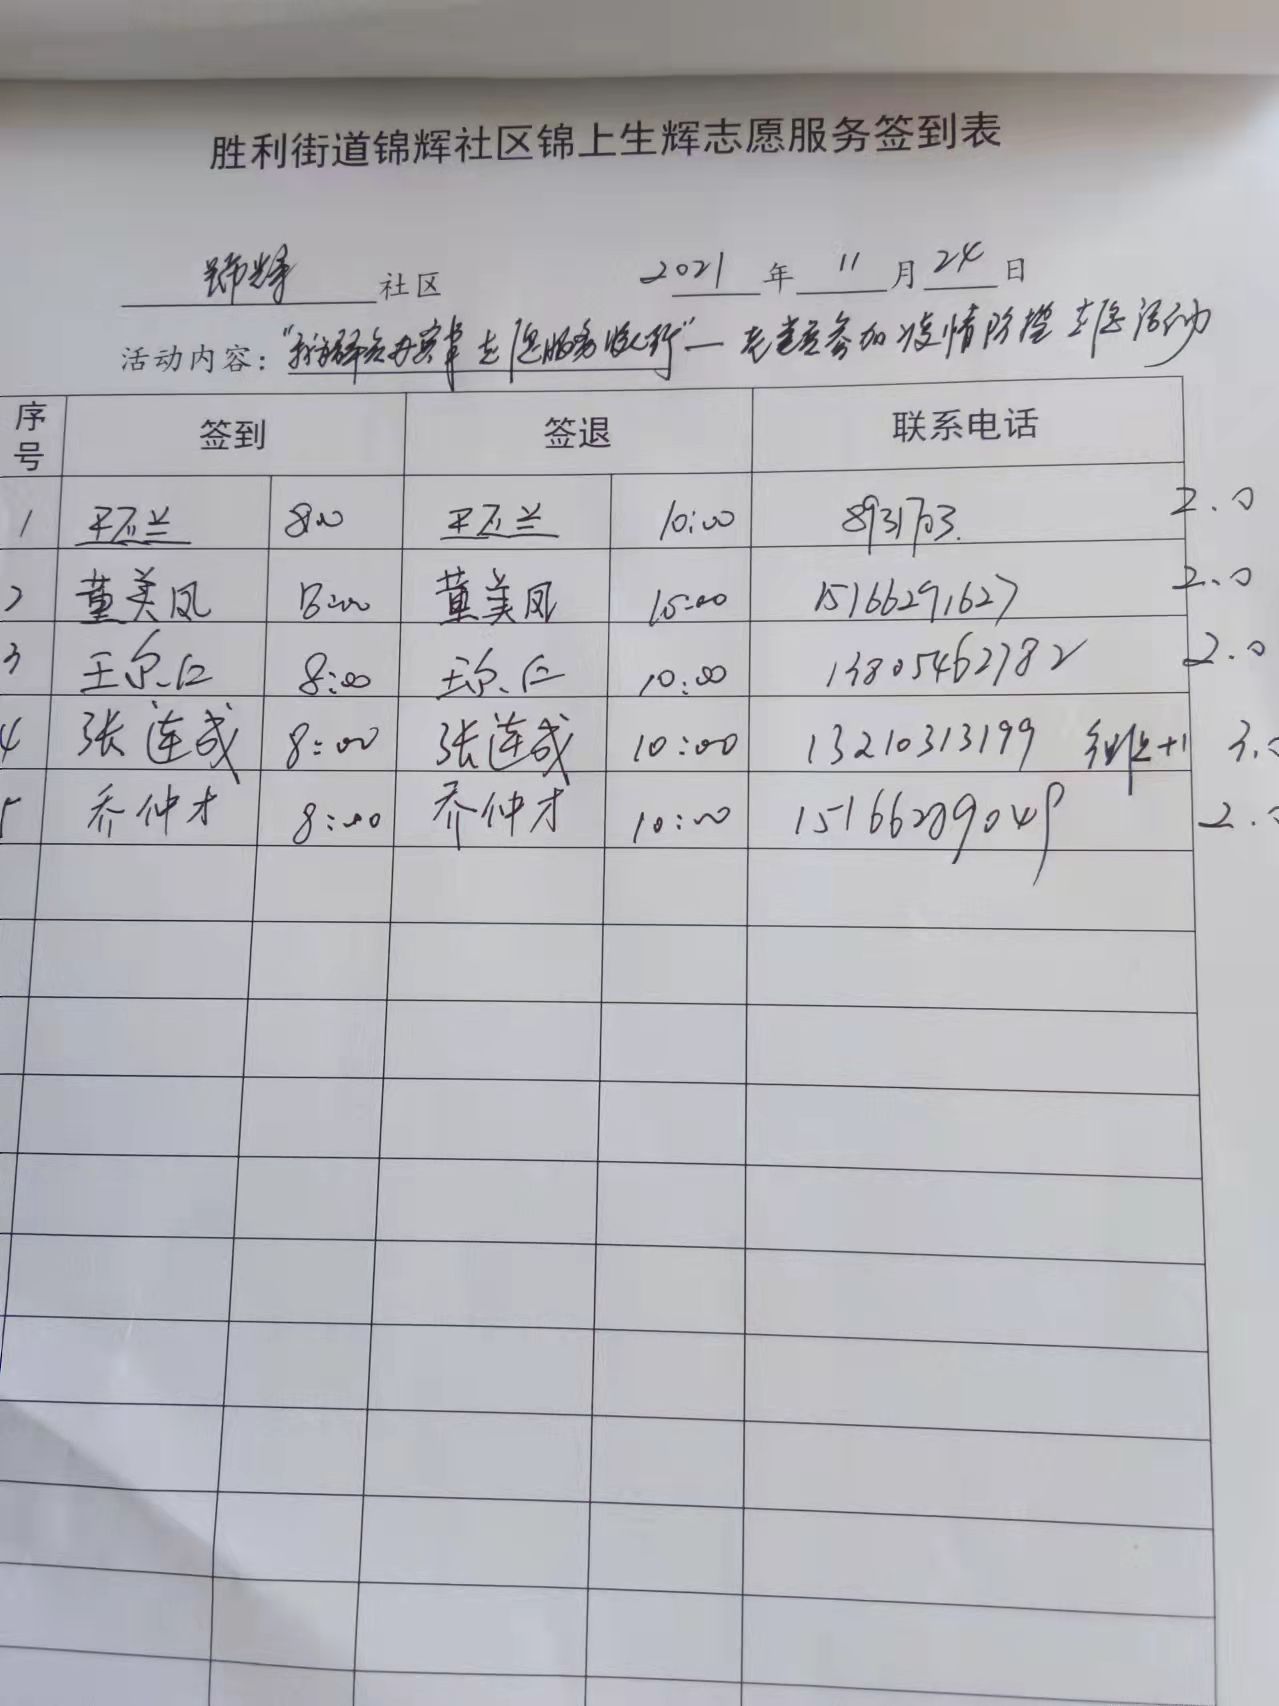 胜利街道锦辉社区锦上生辉志愿服务签到表
锦辉 社区 2021 年 11 月 24 日
活动内容: "我为群众办实事 志愿服务 — 老党员参加疫情防控志愿活动
序号 签到 签退 联系电话
1 兰 8:00 兰 10:00 8931703 2.0
2 董美凤 13:00 董美凤 15:00 15166291627 2.0
3 王尔仁 8:00 王尔仁 10:00 13805462782 2.0
4 张连成 8:00 张连成 10:00 13210313199 +1 3.0
5 乔仲才 8:00 乔仲才 10:00 15166289049 2.0